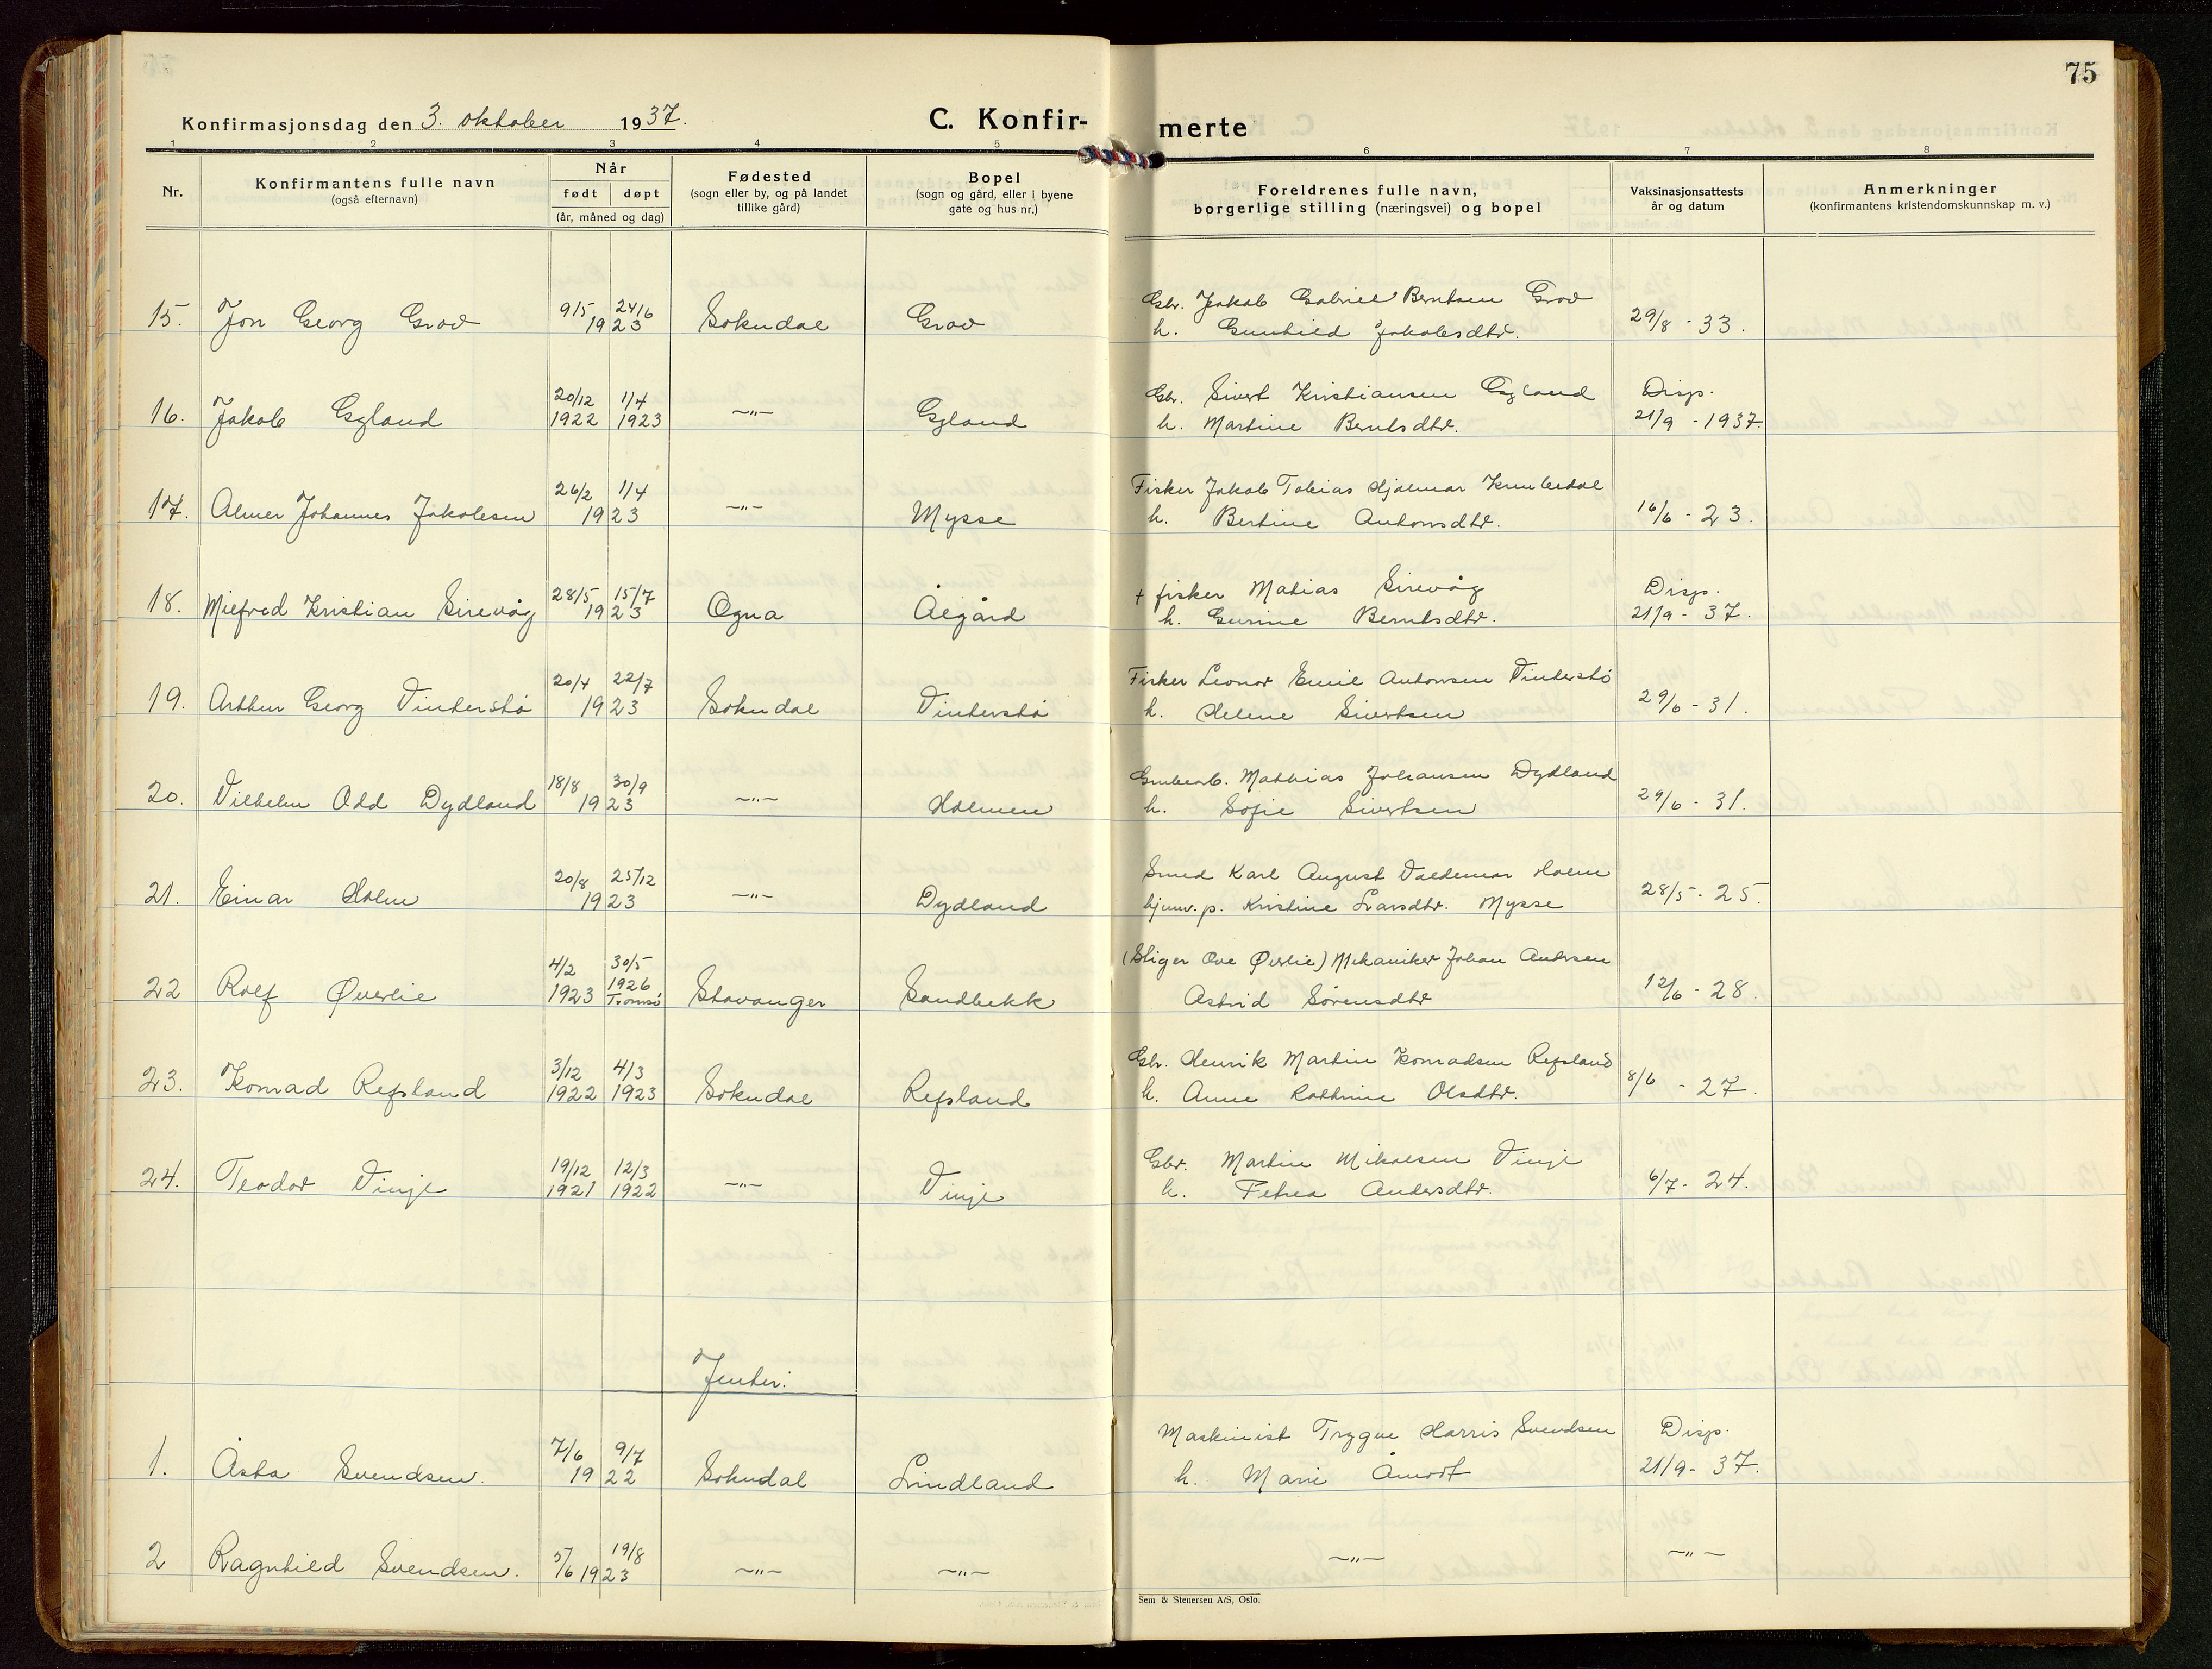 75
Konfirmasjonsdag den 3. oktober 1937.
C. Konfir- merte
1 2 3 4 5 6 7 8
Nr.
Konfirmantens fulle navn
(også efternavn)
Når
født døpt
(år, måned og dag)
Fødested
(sogn eller by, og på landet
tillike gård)
Bopel
(sogn og gård, eller i byene
gate og hus nr.)
Foreldrenes fulle navn,
borgerlige stilling (næringsvei) og bopel
Vaksinasjonsattests
år og datum
Anmerkninger
(konfirmantens kristendomskunnskap m. v.)
9/5 24/6 Gbr. Jakob Gabriel Berntsen Grov
15. Jon Georg Grov 1923 Sokndal Grov h. Gunhild Jakobsdtr. 29/8 - 33.
20/12 1/4 Gbr. Sivert Kristiansen Egland Disp.
16. Jakob Egland 1922 1923 -"- Egland h. Martine Berntsdtr. 21/9 - 1937.
26/2 1/4 Fisker Jakob Tobias Hjalmar
17. Almer Johannes Jakobsen 1923 -"- Mysse h. Bertine Antonsdtr. 16/6 - 23.
28/5 15/7 + fisker Matias Sirevåg Disp.
18. Milfred Kristian Sirevåg 1923 Ogna Ålgård h. Gurine Berntsdtr. 21/9 - 37.
20/4 22/7 Fisker Leonor Emil Antonsen Vinterstø
19. Arthur Georg Vinterstø 1923 Sokndal Vinterstø h. Helene Sivertsen 29/6 - 31.
18/8 30/9 Grubearb. Mathias Johansen Dydland
20. Vilhelm Odd Dydland 1923 -"- Holmen h. Sofie Sivertsen 29/6 - 31.
20/8 25/12 Smed Karl August Valdemar Holm
21. Einar Holm 1923 -"- Dydland p. Kristine Larsdtr. Mysse 28/5 - 25.
4/2 30/5 (Stiger Ove Øverlie) Mekaniker Johan Andersen
22 Rolf Øverlie 1923 1926 Tromsø Stavanger Sandbekk Astrid Sørensdtr 12/6 - 28.
3/12 4/3 Gbr. Henrik Martin Konradsen Refsland
23. Konrad Refsland 1922 1923 Sokndal Refsland h. Anne Kathrine Olsdtr. 8/6 - 27.
19/12 12/3 Gbr. Martin Mikalsen Vinje
24. Teodor Vinje 1921 1922 -"- Vinje h. Petrea Andersdtr. 6/7 - 24.
Jenter:
7/6 9/7 Maskinist Trygve Harris Svendsen Disp.
1. Åsta Svendsen. 1922 Sokndal Lindland h. Marie Åmodt 21/9 - 37.
2 Ragnhild Svendsen. 5/6 19/8 1923 -"- -"- -"- -"-
Sem & Stenersen A/S, Oslo.